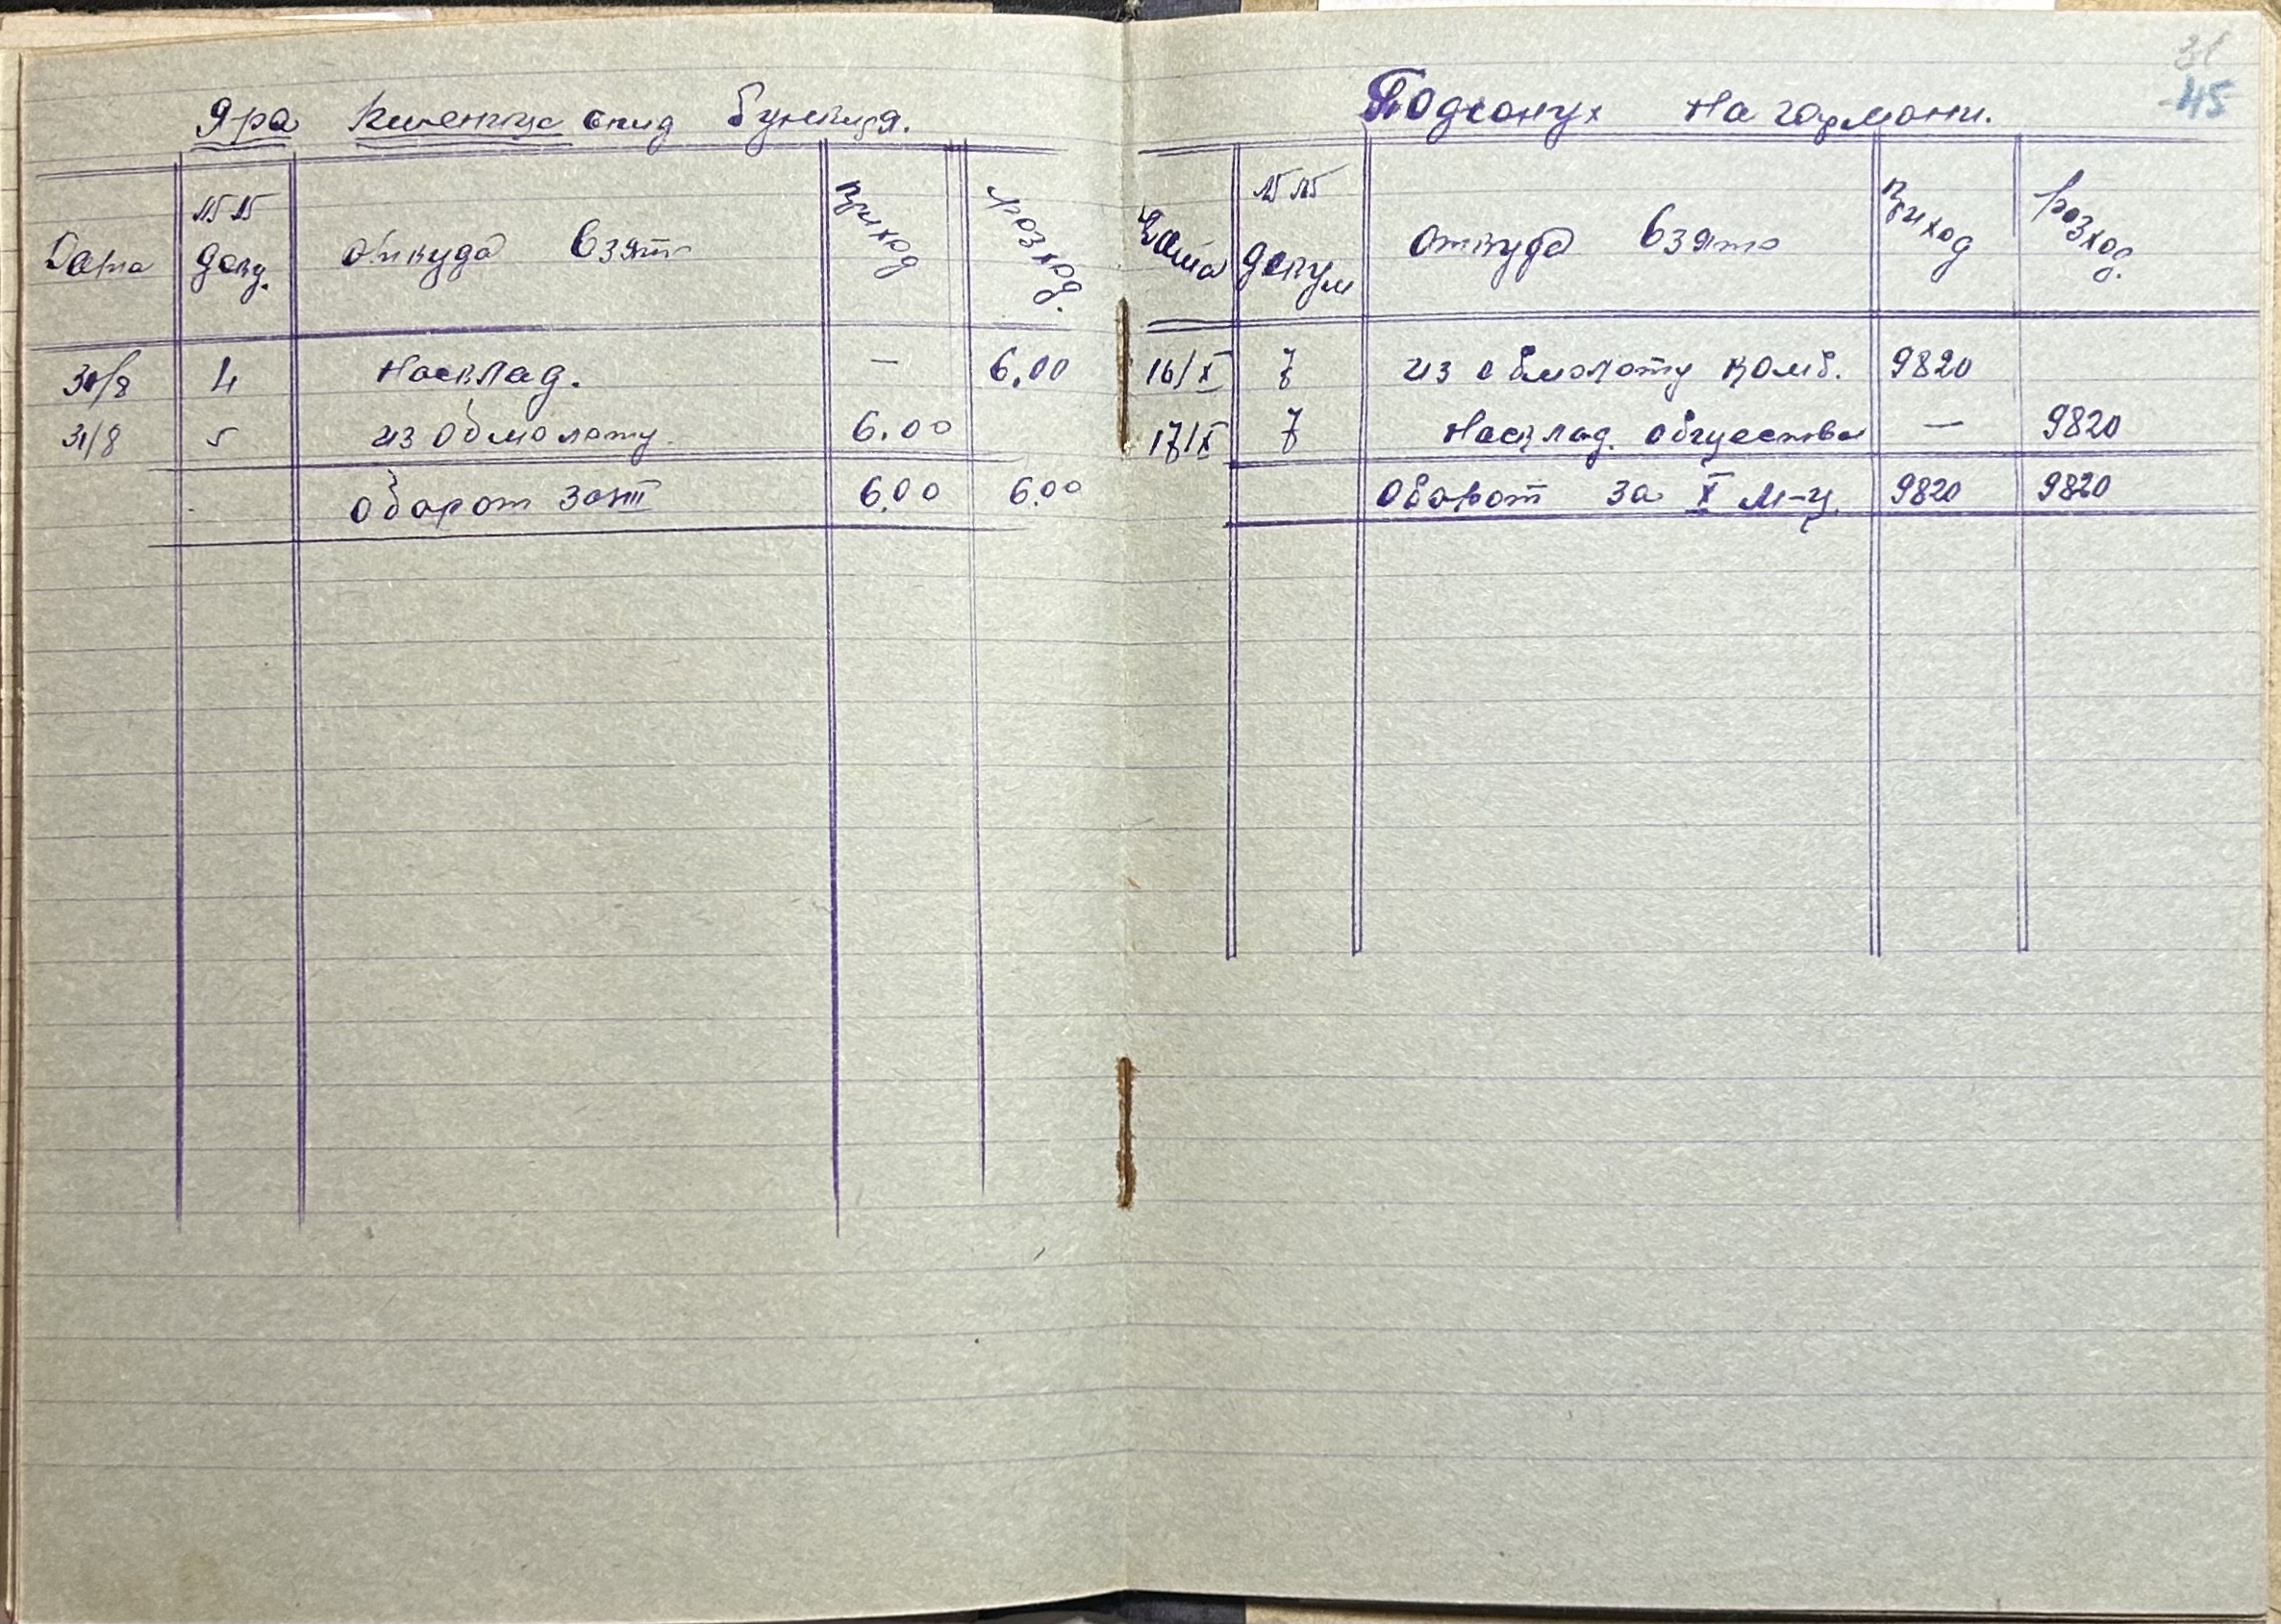 Яра пшениця спид бункиря.
Дата
№№ докд.
откуда взято
приход
розход.
30/8 4 Насклад. — 6.00
31/8 5 из обмолоту. 6.00
оборот за III 6.00 6.00
45
Подсонух На гармони.
Дата
№№ докум
откуда взято
приход
розход.
16/X 7 из обмолоту комб. 9820
17/X 7 Насклад. общества — 9820
Оборот за X м-ц. 9820 9820